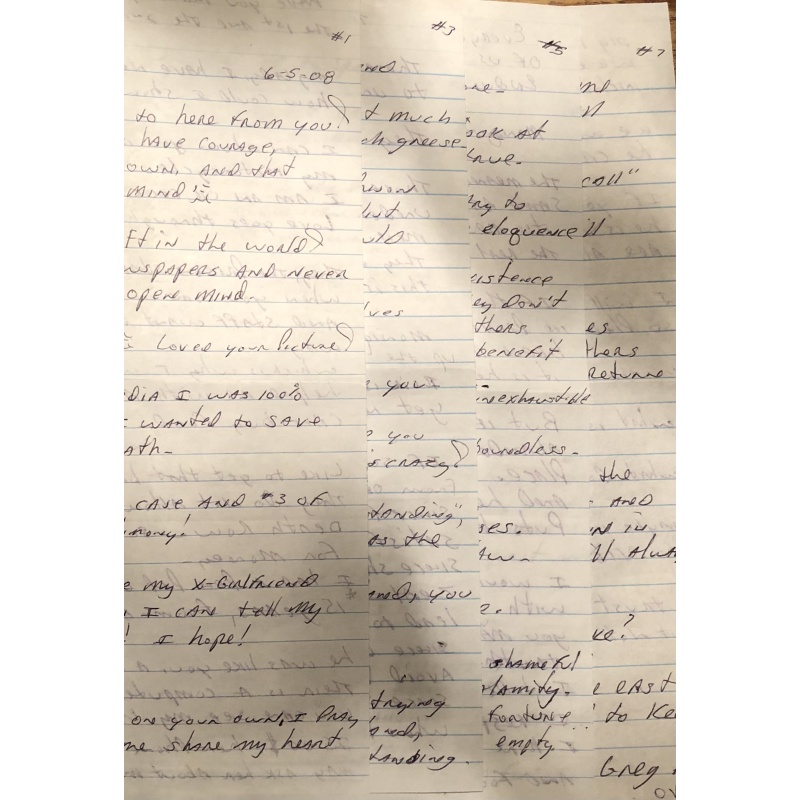 #1
6-5-08
to here From you?
HAVE COURAGE,
OWN, AND that
MIND
FT in the world?
WSPAPERS AND NEVER
OPEN MIND.
Loved your Picture?
DIA I WAS 100%
I WANTED to SAVE
ath-
CASE AND #3 OF
money!
e my X-Girlfriend
I CAN tell My
! I hope!
on your own, I PRAY
me share my heart
#3
t much
ch greese-
lves
you
you
is crazy?
tanding",
as the
and, you
trying
ned,
tanding.
#5
me-
ook at
ave.
ng to
eloquence
istence
ey Don't
thers
benefit
inexhaustible
boundless-
ses.
2.
shameful
lamity.
fortune
empty
#7
call"
ll
es
thers
Returne
the
AND
in
ll Alwa
ve?
e EAST
to Ke
Greg